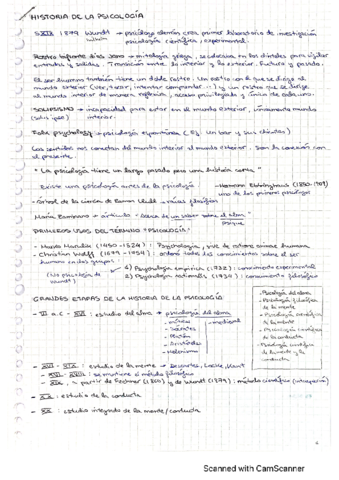 HISTORIA DE LA PSICOLOGÍA
SXIX 1879 Wundt → psicólogo alemán crea primer laboratorio de investigación
Wilhelm psicología científica, experimental.
Rostro bifronte dios Jano → mitología griega, se colocaba en los dinteles para vigilar
entradas y salidas. Transición entre lo interior y lo exterior. Futuro y pasado.
El ser humano también tiene un doble rostro. Un rostro con el que se dirige al
mundo exterior (ver, tocar, intentar comprender...) y un rostro que se dirige
al mundo interior de manera reflexiva, acceso privilegiado y único de cada uno.
SOLIPSISMO → incapacidad para estar en el mundo exterior, únicamente mundo
(solus ipse) interior.
Folk psychology → psicología espontánea (Ej. Un bar y sus chistes)
Los sentidos nos conectan del mundo interior al mundo exterior. Son la conexión con
el presente.
"La psicología tiene un largo pasado pero una historia corta"
Existe una psicología antes de la psicología → Hermann Ebbinghaus (1850-1909)
uno de los primeros psicólogos
- Árbol de la ciencia de Ramon Llull → raíces filosofía
María Zambrano → artículo - Acerca de un saber sobre el alma
psique
PRIMEROS USOS DEL TÉRMINO "PSICOLOGÍA"
- Marko Marulik (1450-1524): Psychologia, de ratione animae humanae
- Christian Wolff (1679-1754): ordenó todos los conocimientos sobre el ser
humano en dos grupos:
1) Psychologia empirica (1732): conocimiento experimental
2) Psychologia rationalis (1734): conocimiento filosofía
(No psicología de Wundt)
GRANDES ETAPAS DE LA HISTORIA DE LA PSICOLOGÍA
- Psicología del alma
- Psicología filosófica de la mente
- Psicología científica de la mente
- Psicología científica de la conducta
- Psicología científica de la mente y la conducta
- VI a.C - XVI: estudio del alma → psicología del alma
- medieval
- Sócrates
- Platón
- Aristóteles
- Helenismo
- XVI - XIX: de la mente → Descartes, Locke, Kant
- XVII - XVIII: se mantiene el método filosófico
- XIX, a partir de Fechner (1860) y de Wundt (1879): método científico (introspección)
- XX: estudio de la conducta
- XX: estudio integrado de la mente/conducta
Scanned with CamScanner